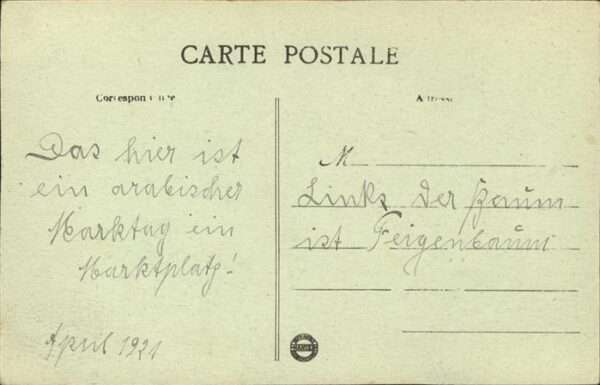 CARTE POSTALE
Correspondance
Adresse
Das hier ist
ein arabischer
Marktag ein
Marktplatz!
April 1921
M
Links der Baum
ist Feigenbaum